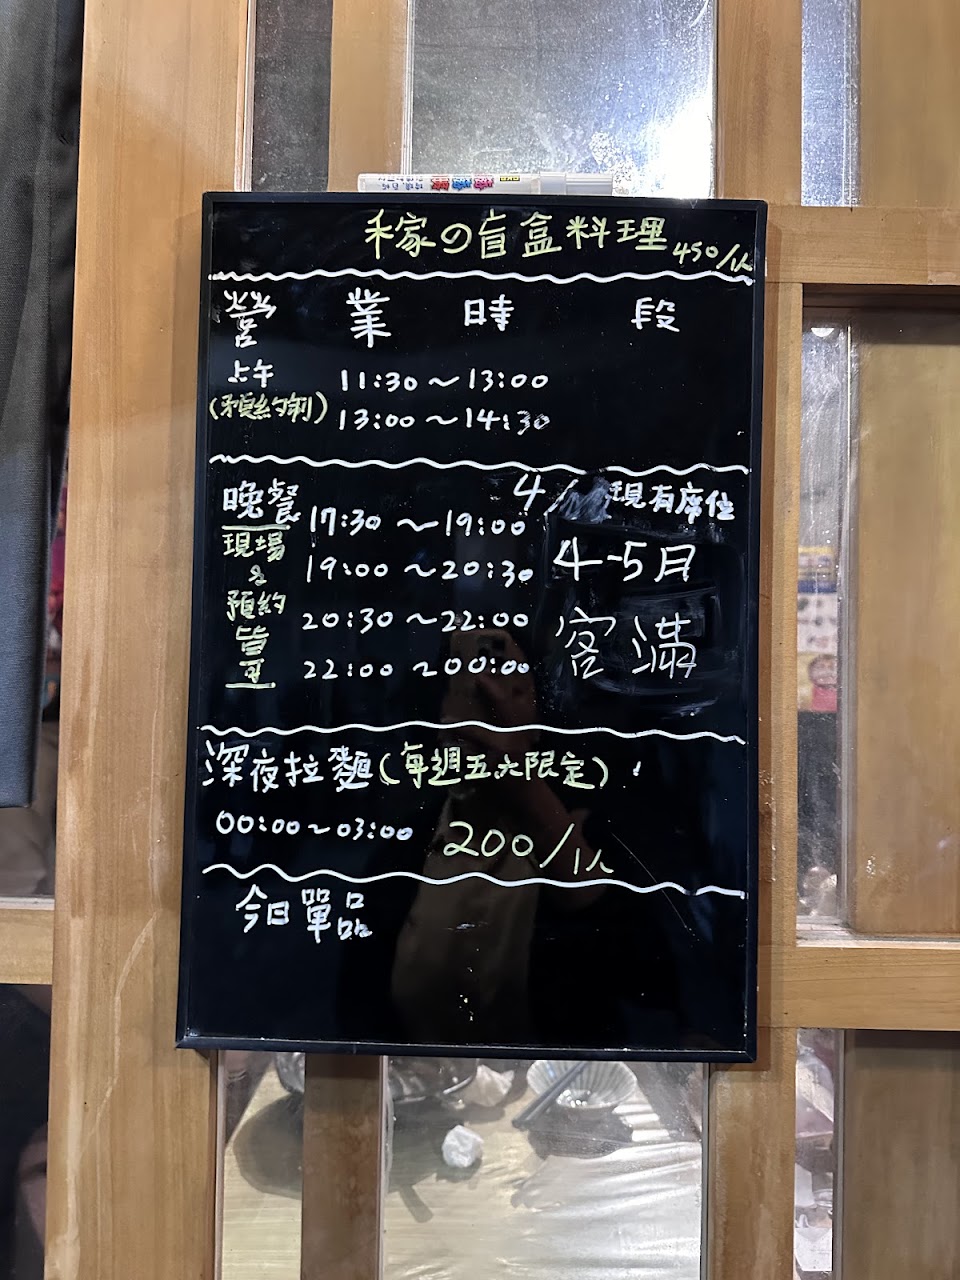 稼の盲盒料理 450/人
營業時段
上午 11:30～13:00
(預約制) 13:00～14:30
4/ 現有席位
晚餐 17:30～19:00
現場 19:00～20:30 4-5月
&
預約 20:30～22:00 客滿
皆可 22:00～00:00
深夜拉麵(每週五六限定)!
00:00～03:00 200/1人
今日單品